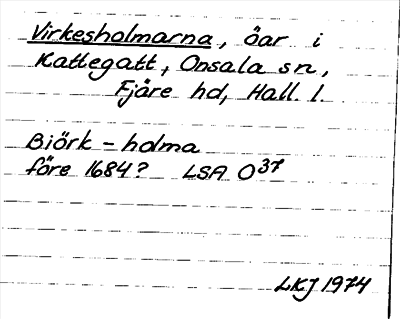 Virkesholmarna, öar i
Kattegatt, Onsala sn,
Fjäre hd, Hall. l.
Biörk - holma
före 1684? LSA O37
LKJ 1974